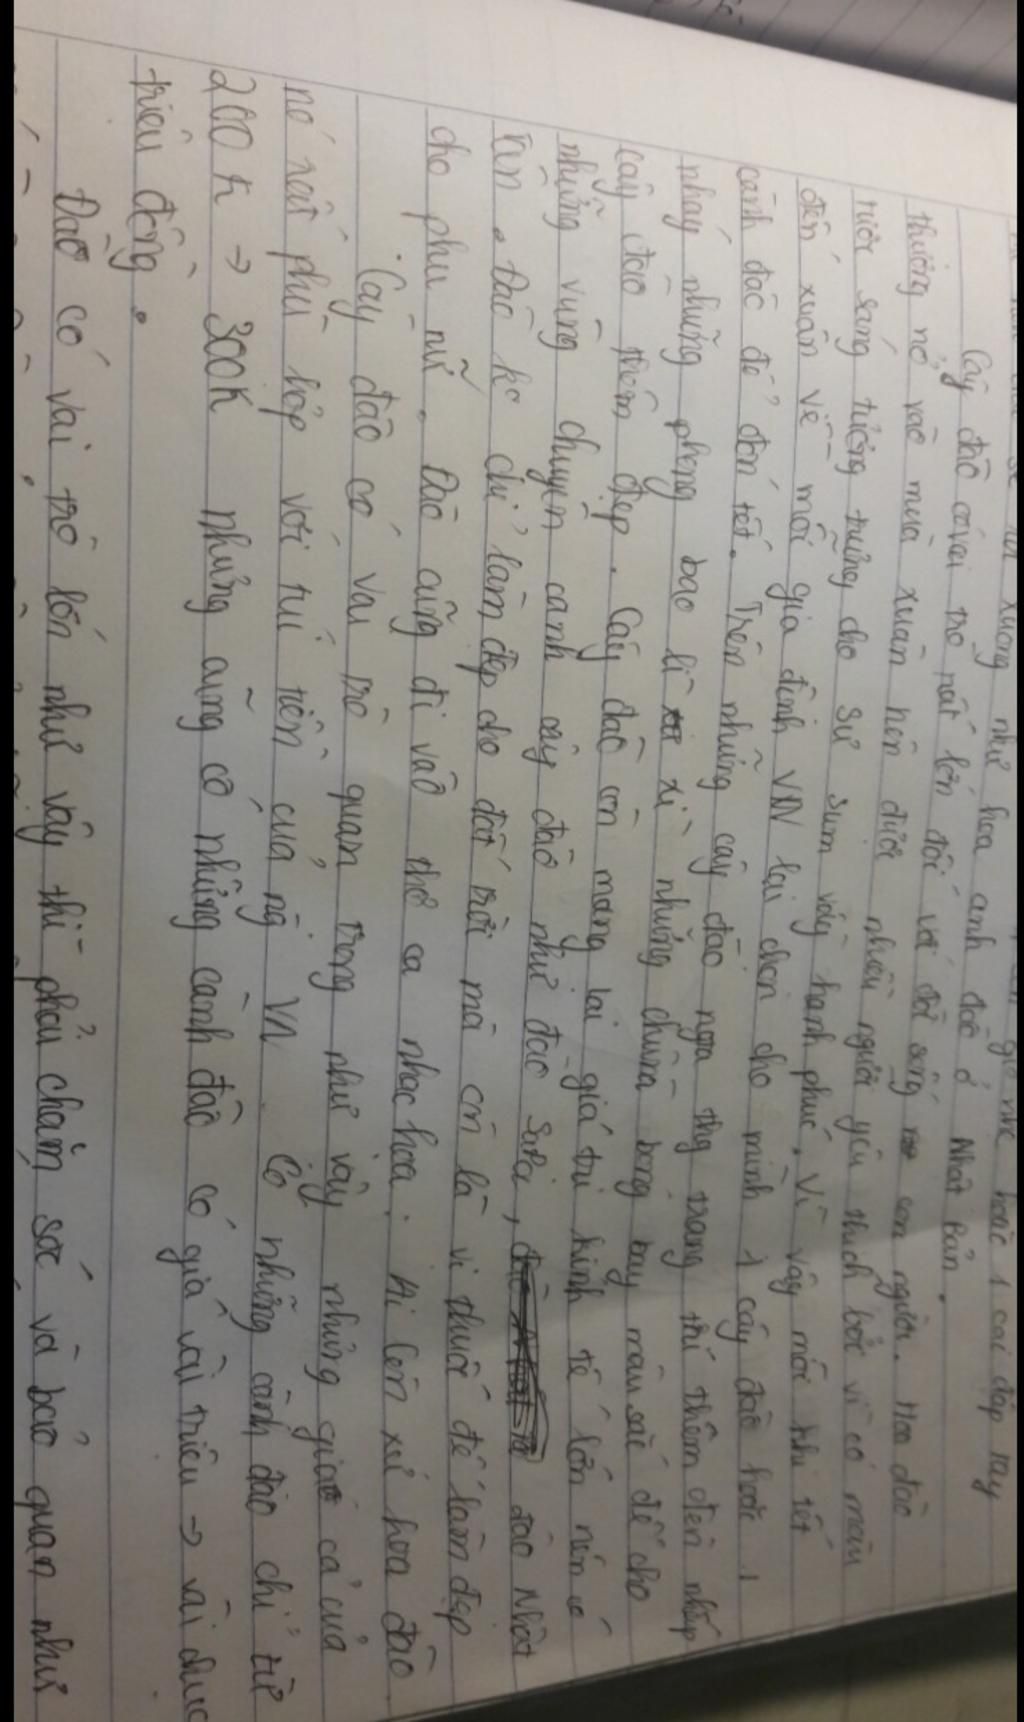 xương như hoa anh đào ở Nhật Bản.
Cây đào có vai trò rất lớn đối với đời sống con người. Hoa đào
thường nở vào mùa xuân nên được nhiều người yêu thích bởi vì có màu
tươi sáng tượng trưng cho sự sum vầy hạnh phúc. Vì vậy mỗi khi tết
đến xuân về mỗi gia đình VN lại chọn cho mình 1 cây đào hoặc 1
cành đào để đón tết. Trên những cây đào ngta thg trang trí thêm đèn nhấp
nháy những phong bao lì xì những chùm bóng bay màu sắc để cho
cây đào thêm đẹp. Cây đào còn mang lại giá trị kinh tế lớn nên có
những vùng chuyên canh cây đào như đào SaPa, đào Nhật
Tân. Đào ko chỉ làm đẹp cho đất trời mà còn là vị thuốc để làm đẹp
cho phụ nữ. Đào cũng đi vào thơ ca nhạc họa. Ai lên xứ hoa đào.
Cây đào có vai trò quan trọng như vậy nhưng giá cả của
nó rất phù hợp với túi tiền của ng VN. Có những cành đào chỉ từ
200 K → 300K nhưng cũng có những cành đào có giá vài triệu → vài chục
triệu đồng.
Đào có vai trò lớn như vậy thì phải chăm sóc và bảo quản như